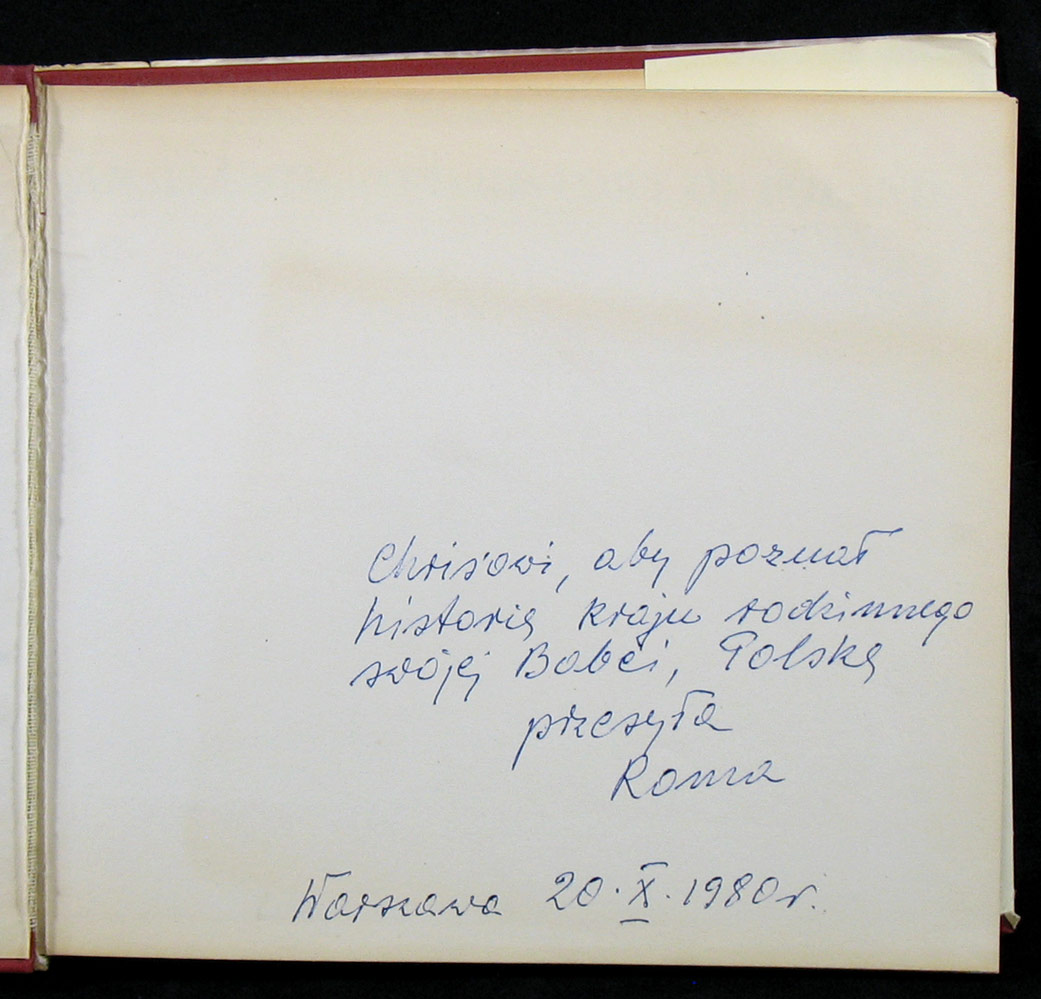 Chrisowi, aby poznał
historię kraju rodzinnego
swójej Babci, Polskę
przesyła
Roma
Warszawa 20.X.1980r.